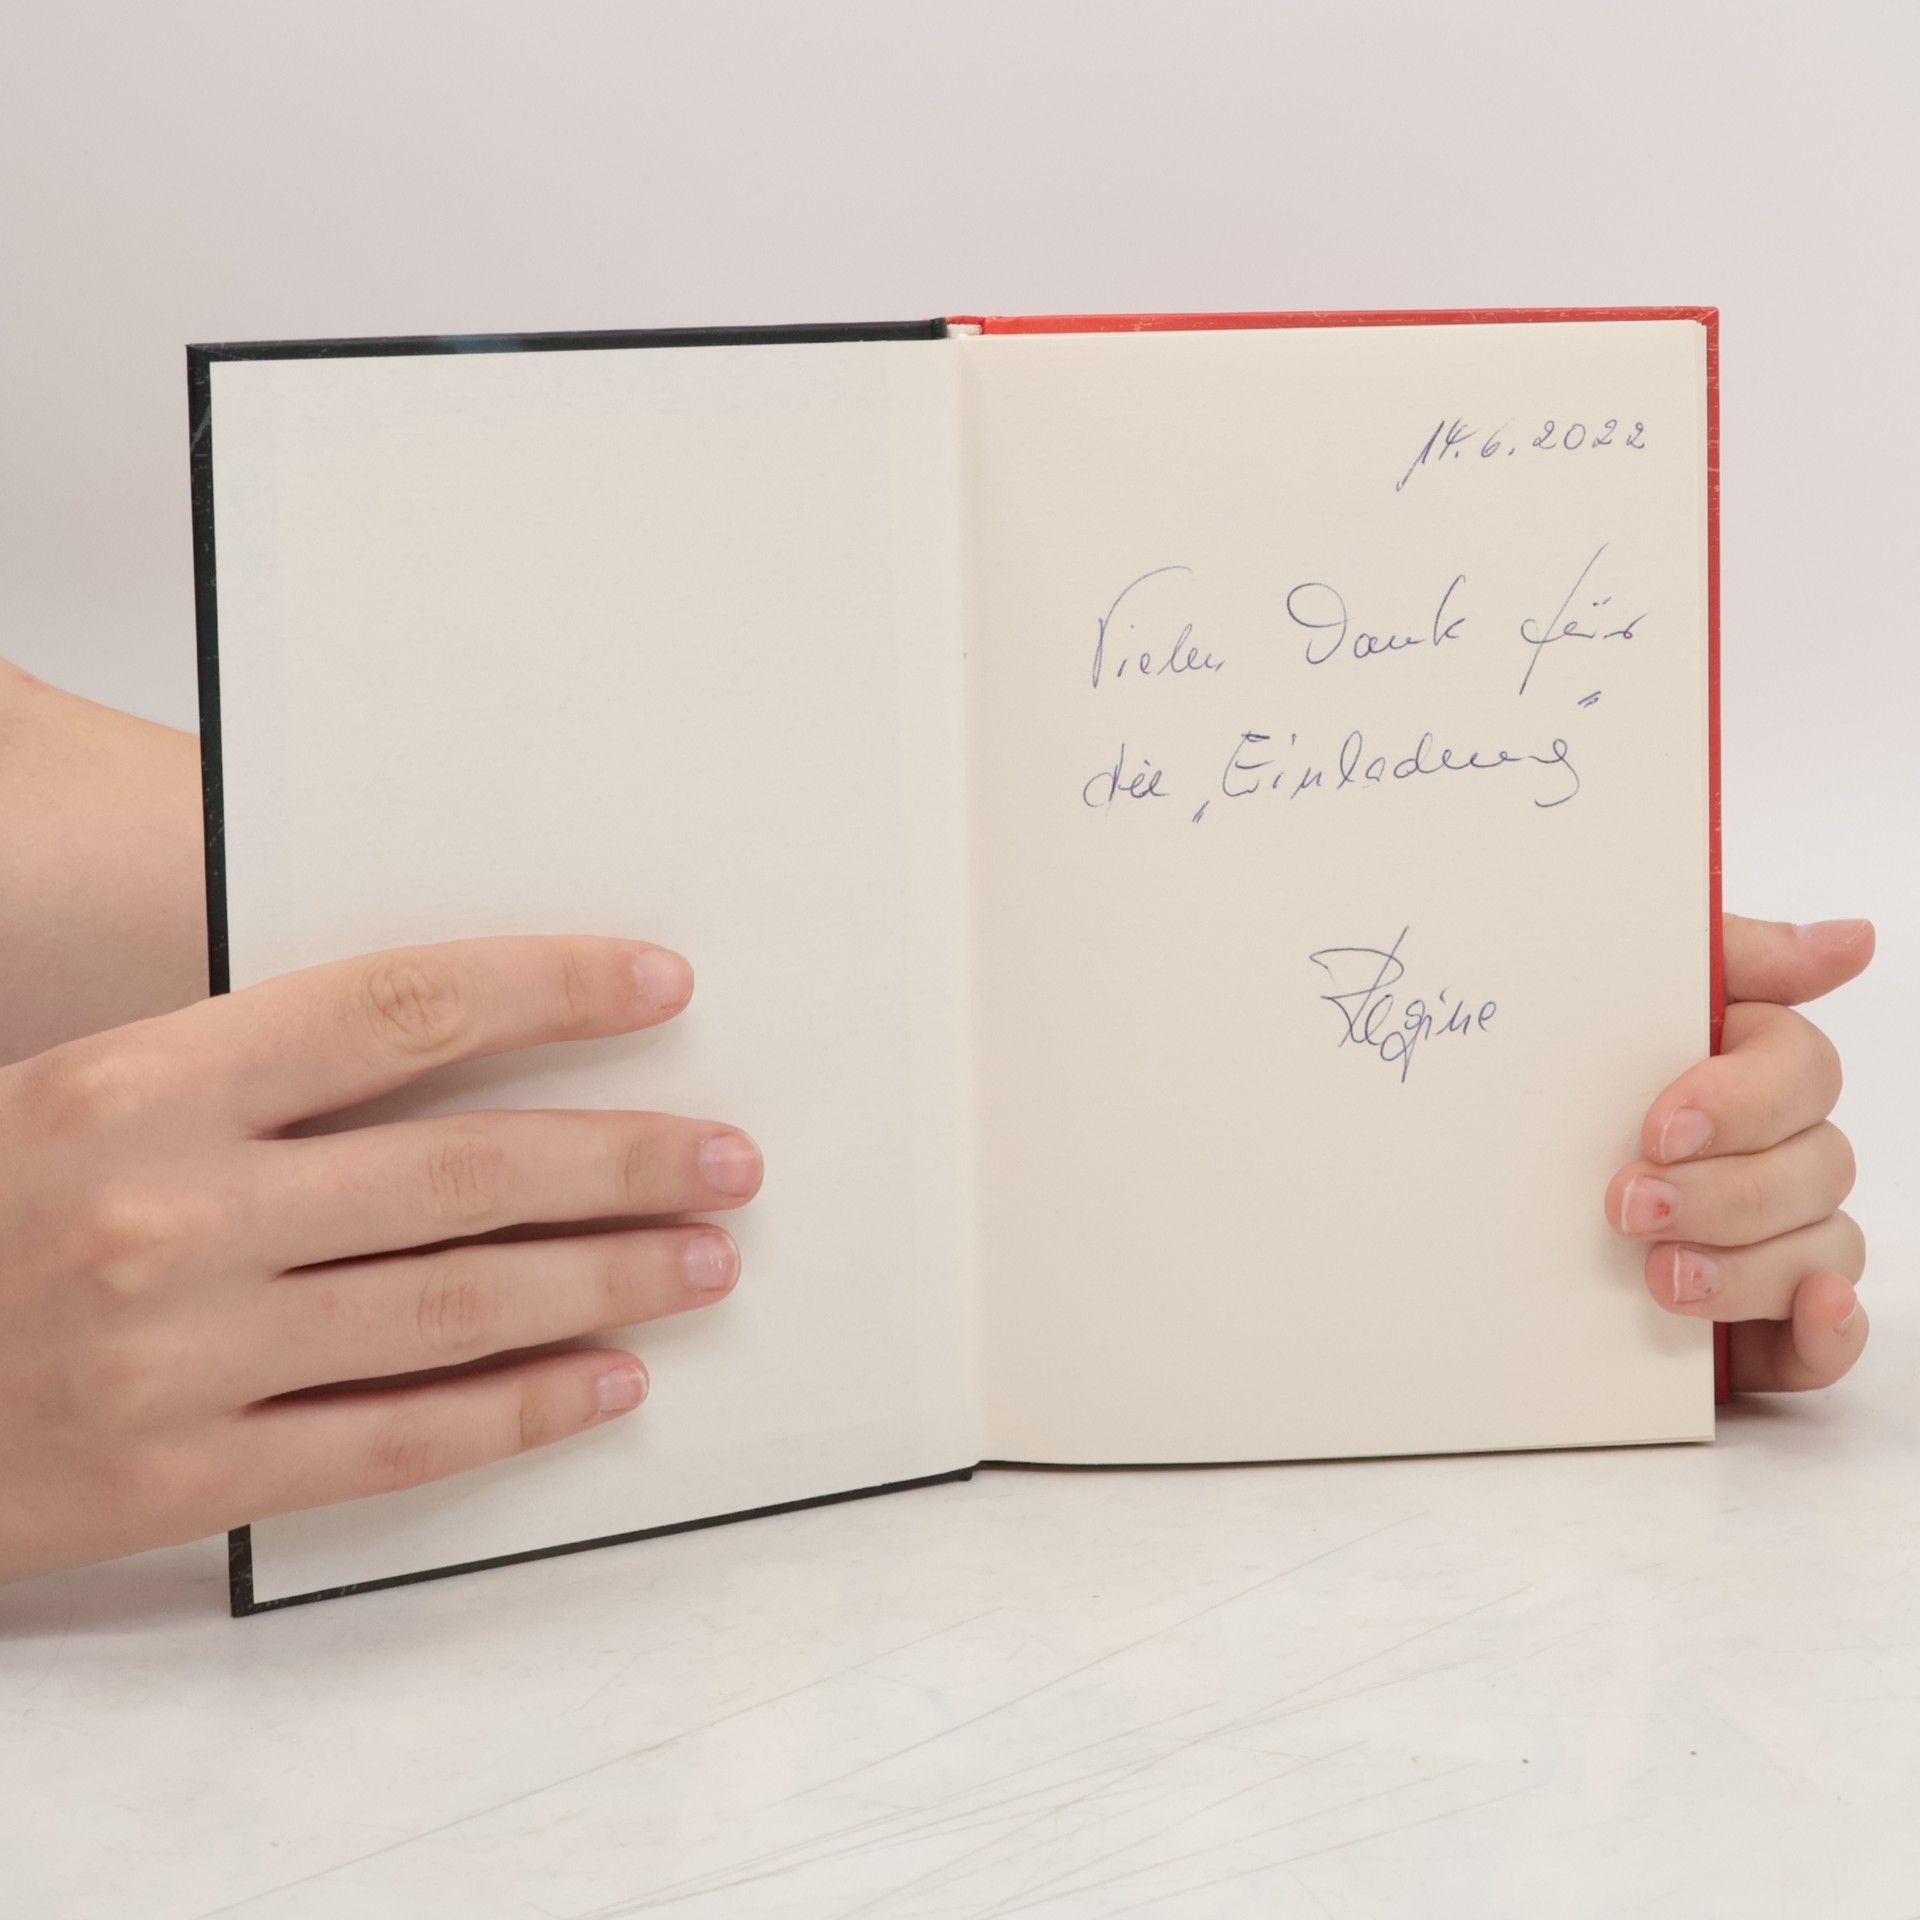 14.6.2022
Vielen Dank für
die „Einladung“
Regine